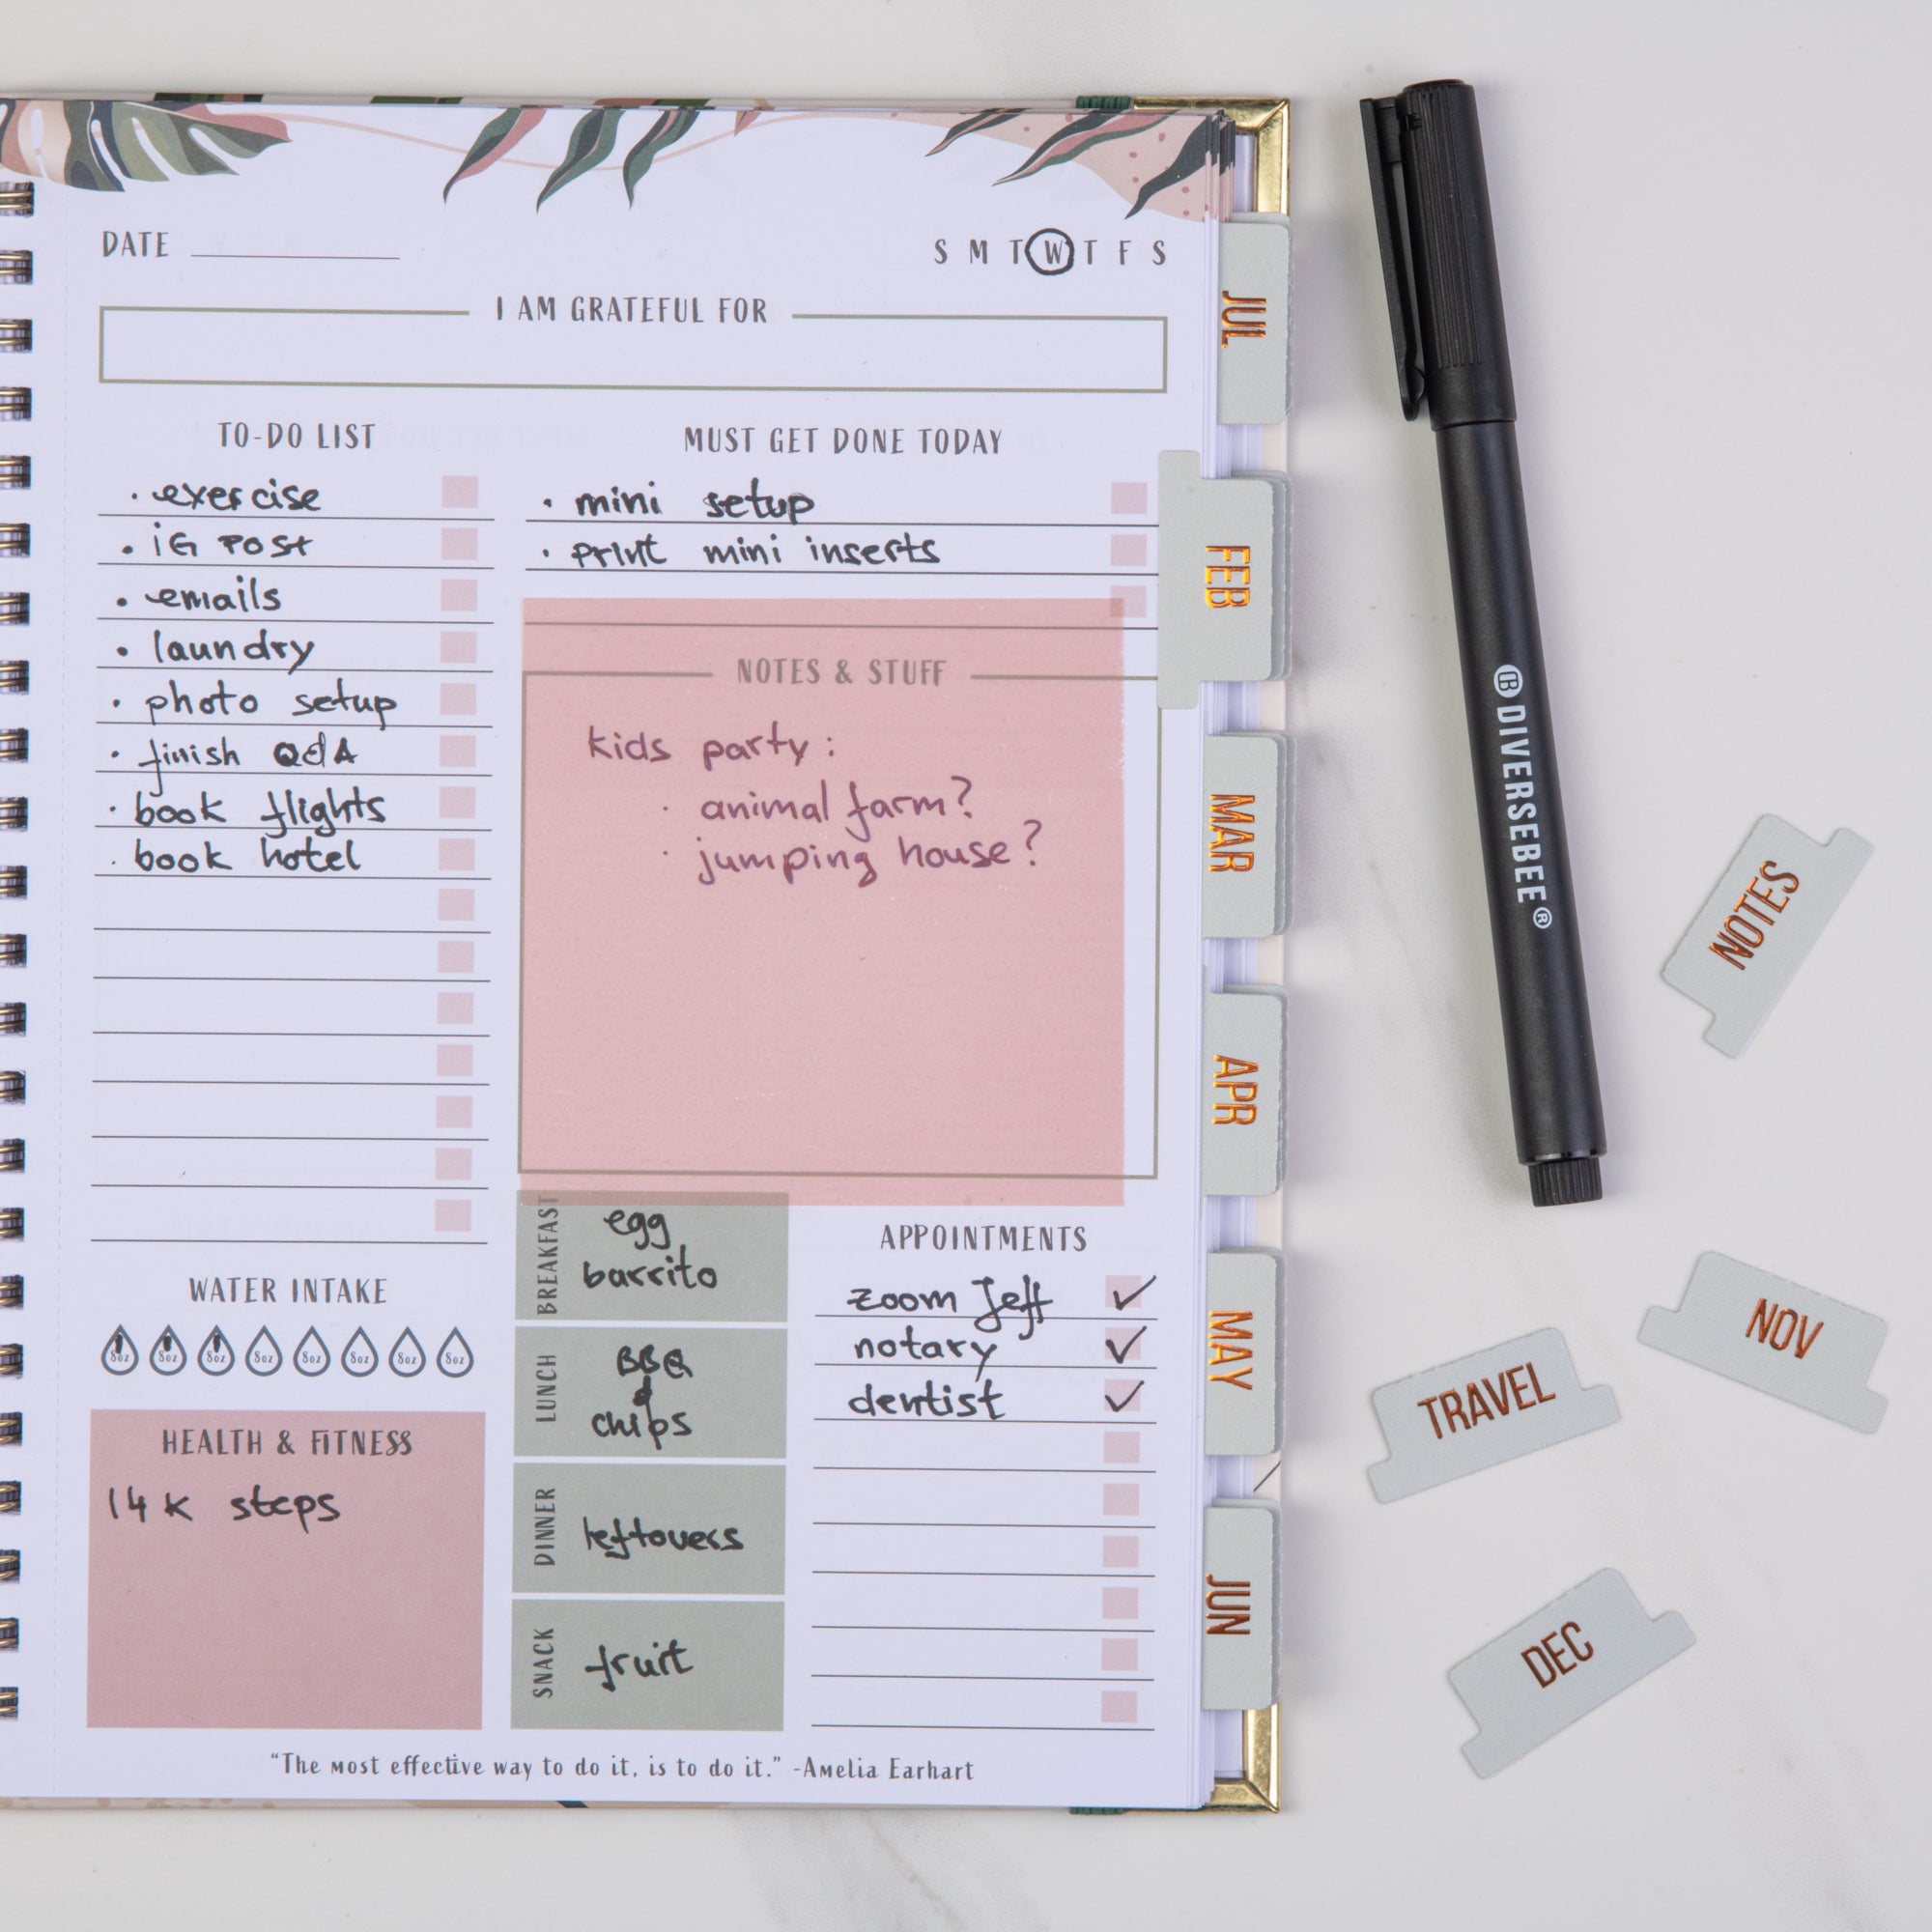 DATE
S M T W T F S
I AM GRATEFUL FOR
TO-DO LIST
• exercise
• iG Post
• emails
• laundry
• photo setup
• finish Q&A
• book flights
• book hotel
MUST GET DONE TODAY
• mini setup
• print mini inserts
NOTES & STUFF
kids party:
• animal farm?
• jumping house?
WATER INTAKE
8oz 8oz 8oz 8oz 8oz 8oz 8oz 8oz
HEALTH & FITNESS
14K steps
BREAKFAST
egg
barrito
LUNCH
BBQ
&
chips
DINNER
leftovers
SNACK
fruit
APPOINTMENTS
zoom Jeff
notary
dentist
“The most effective way to do it, is to do it.” -Amelia Earhart
JUL
FEB
MAR
APR
MAY
JUN
DIVERSEBEE®
NOTES
NOV
TRAVEL
DEC